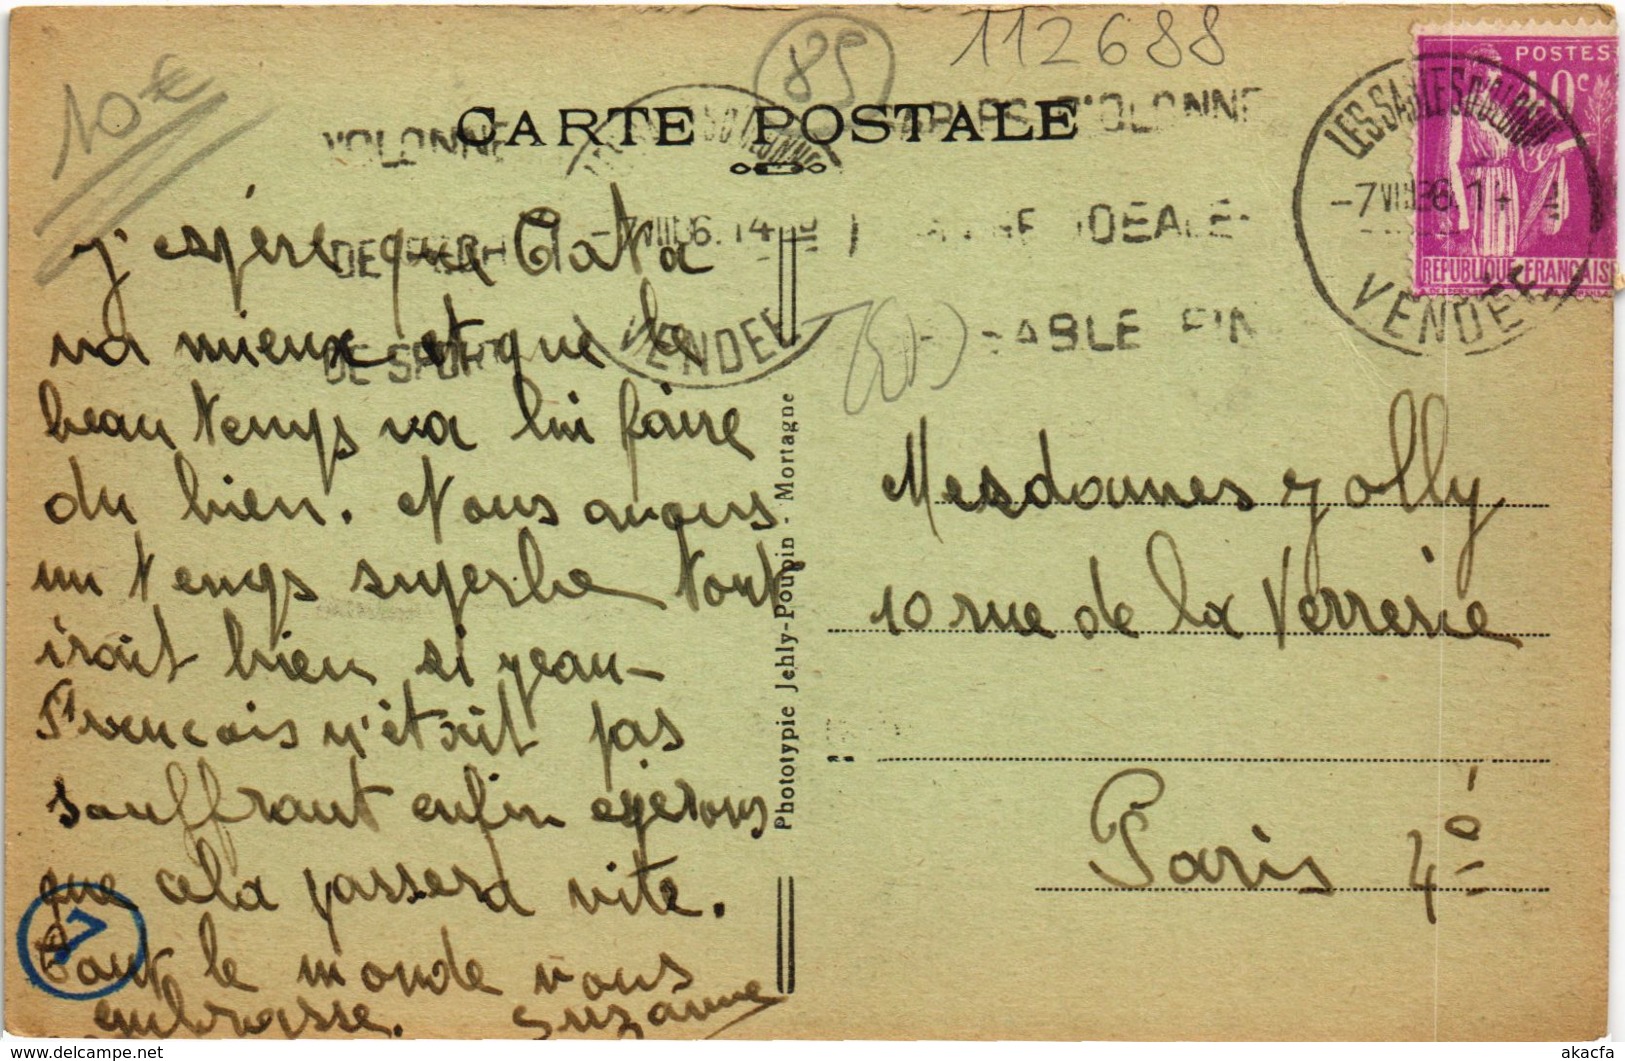 10€
85
112688
CARTE POSTALE
POSTES
LES SABLES D'OLONNE
-7 VIII 36. 14
VENDÉE
REPUBLIQUE FRANÇAISE
J'espère que Tata
va mieux et que le
beau temps va lui faire
du bien. Nous avons
un temps superbe tout
irait bien si Jean-
François n'était pas
souffrant enfin espérons
que cela passera vite.
Tout le monde vous
embrasse. Suzanne
Phototypie Jehly-Poupin - Mortagne
Mesdames Jolly
10 rue de la Verrerie
Paris 4è
akacfa